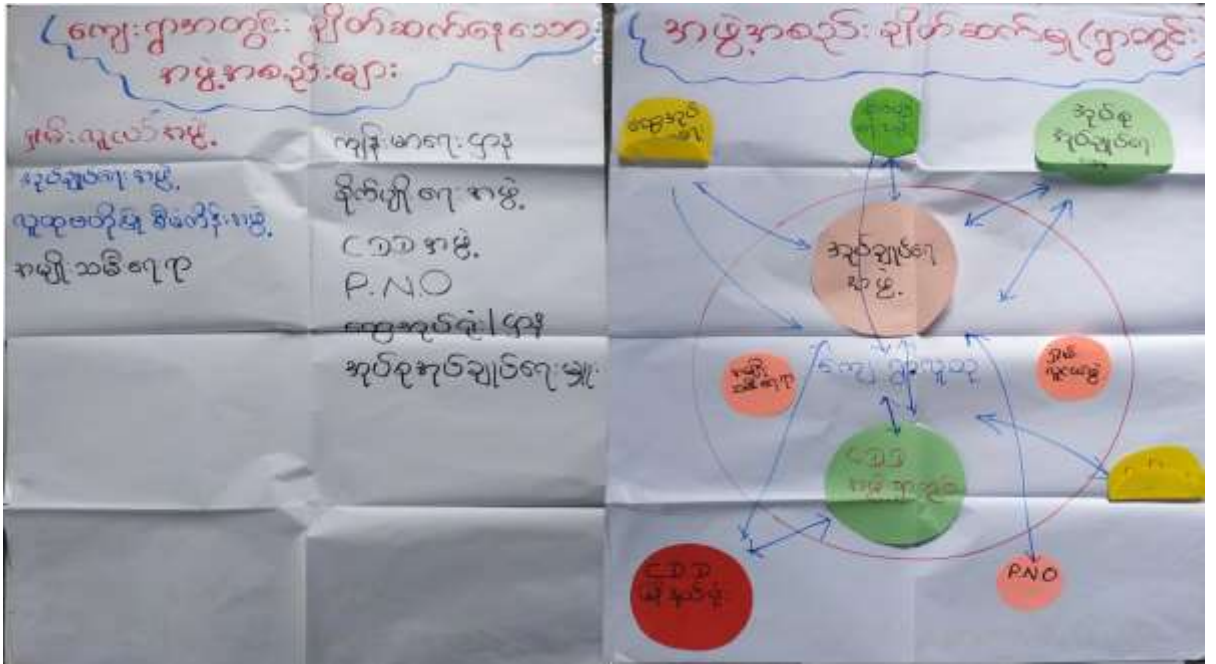 ကျေးရွာအတွင်း ချိတ်ဆက်နေသော
အဖွဲ့အစည်းများ
ရှမ်းလူငယ်အဖွဲ့
အုပ်ချုပ်ရေးအဖွဲ့
လူထုဗဟိုပြု စီမံကိန်းအဖွဲ့
အမျိုးသမီးရေးရာ
ကျန်းမာရေးဌာန
စိုက်ပျိုးရေးအဖွဲ့
CDD အဖွဲ့
P.N.O
ထွေအုပ်ရုံး/ဌာန
အုပ်စုအုပ်ချုပ်ရေးမှူး
အဖွဲ့အစည်းချိတ်ဆက်မှု(ရွာတွင်း)
ထွေအုပ်
အုပ်စု
အုပ်ချုပ်ရေး
အုပ်ချုပ်ရေး
အဖွဲ့
ကျေးရွာလူထု
အမျိုး
သမီးရေးရာ
ရှမ်း
လူငယ်အဖွဲ့
CDD
အဖွဲ့ ရွာတွင်း
CDD
မြို့နယ်ရုံး
P.N.O